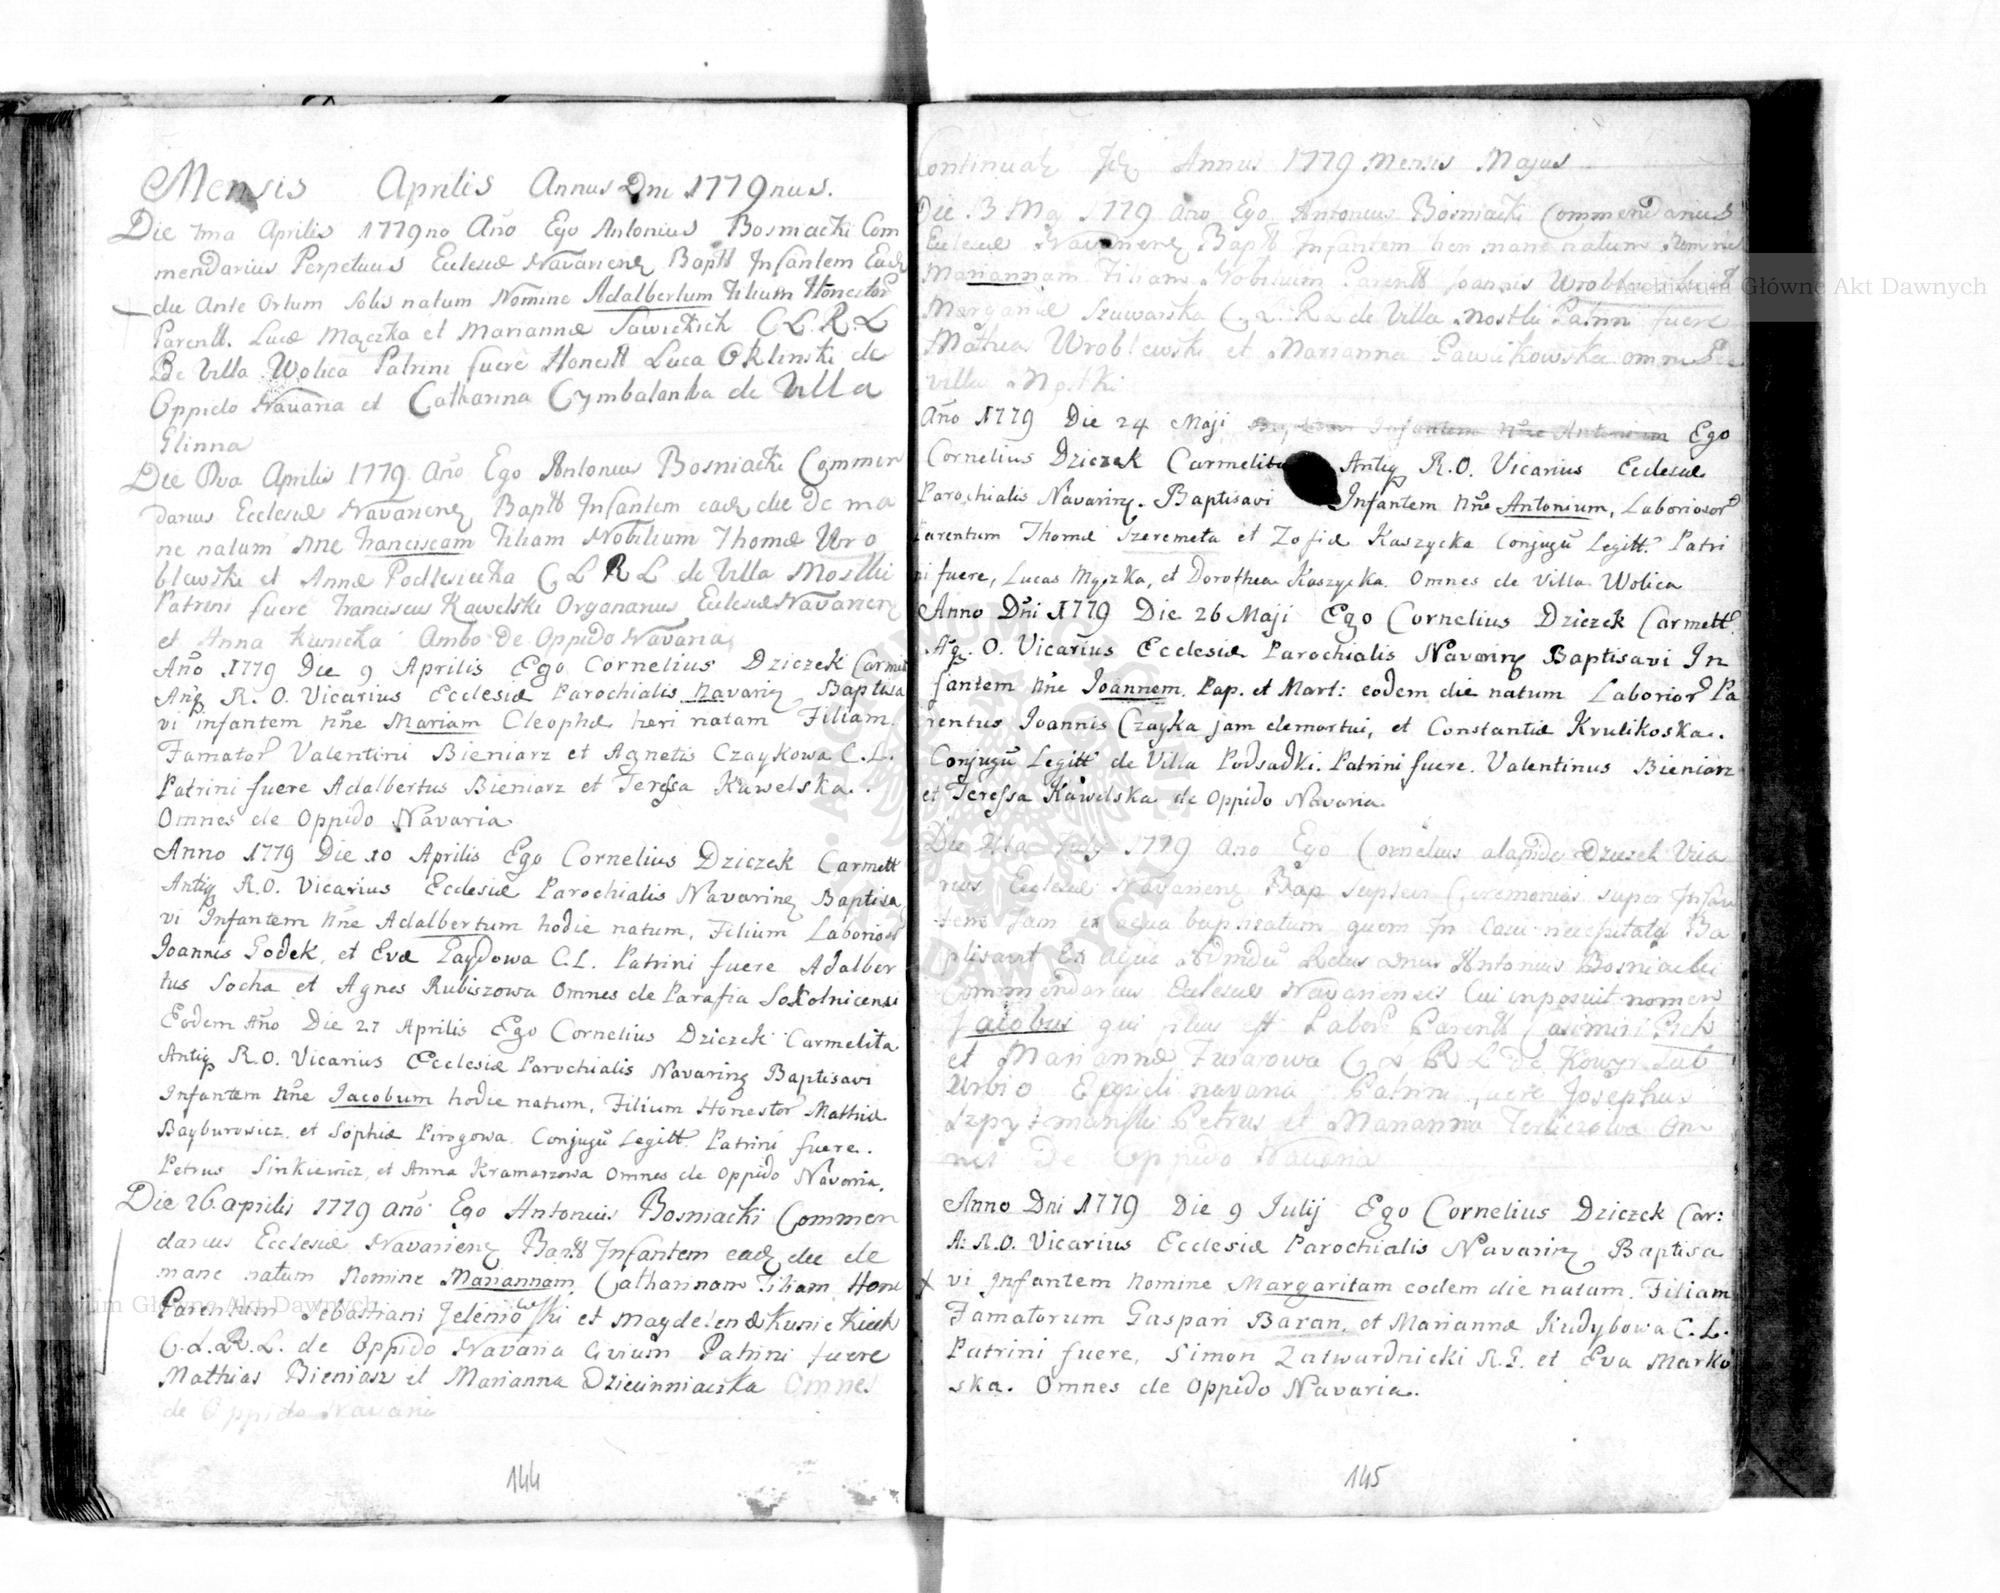 Mensis Aprilis Annus Dni 1779nus.
Die 7ma Aprilis 1779no Año Ego Antonius Bosniacki Com
mendarius Perpetuus Eclesiæ Navarienz Baptt Infantem Eadz
die Ante Ortum Solis natum Nomine Adalbertum Filium Honestor
Parentt. Lucæ Mączka et Mariannæ Sawickich C.L.R.L
De Villa Wolica Patrini fuere Honestt Luca Oklinski de
Oppido Navaria et Catharina Cymbalonka de Villa
Glinna
Die Aprilis 1779 Año Ego Antonius Bosniacki Commen
darius Eclesiæ Navarienz Baptt Infantem eadz die De ma
ne natam Nñe Franciscam Filiam Nobilium Thomæ Wro
blewski et Annæ Podlesiecka C L R L de Villa Mostki
Patrini fuere Franciscus Kawelski Organarius Eclesiæ Navarienz
et Anna Kunicka Ambo De Oppido Navaria
Año 1779 Die 9 Aprilis Ego Cornelius Dziczek Carmit
Antiq R.O. Vicarius Ecclesiæ Parochialis Navarinz Baptisa
vi infantem Nñe Mariam Cleophæ heri natam Filiam
Famator Valentini Bieniarz et Agnetis Czaykowa C.L.
Patrini fuere Adalbertus Bieniarz et Teressa Kawelska.
Omnes de Oppido Navaria
Anno 1779 Die 10 Aprilis Ego Cornelius Dziczek Carmett
Antiq R.O. Vicarius Ecclesiæ Parochialis Navarinz Baptisa
vi Infantem Nñe Adalbertum hodie natum, Filium Laborior
Joannis Godek, et Evæ Gaydowa C.L. Patrini fuere Adalber
tus Socha et Agnes Rubiszowa Omnes de Parafia Sokolnicensi
Eodem Año Die 27 Aprilis Ego Cornelius Dziczek Carmelita
Antiq R.O. Vicarius Ecclesiæ Parochialis Navarinz Baptisavi
Infantem Nñe Jacobum hodie natum, Filium Honestor Mathiæ
Bayburowicz, et Sophiæ Pirogowa Conjugū Legitt. Patrini fuere.
Petrus Sinkiewicz, et Anna Kramarzowa Omnes de Oppido Navaria.
Die 26 aprilis 1779 año Ego Antonius Bosniacki Commen
darius Eclesiæ Navarienz Baptt Infantem eadz die de
mane natam Nomine Mariannam Catharinam Filiam Hone
Parentum Sebastiani Jelenowski et Magdelenæ Kunickich
C.L.R.L. de Oppido Navaria Civium Patrini fuere
Mathias Bieniasz et Marianna Dziecinniaczka Omnes
de Oppido Navaria
144
Continuat Annus 1779 Mensis Majus
Die 13 Maj 1779 Año Ego Antonius Bosniacki Commendarius
Eclesiæ Navarienz Baptt Infantem heri mane natam Nomine
Mariannam Filiam Nobilium Parentt Joannis Wroblewskich
Szuwarska C. L. R L de Villa Mostki Patrini fuere
Mathias Wroblewski et Marianna Pawlikowska omnes De
villa Mostki
Año 1779 Die 24 Maji Baptisavi Infantem Nñe Antonium Ego
Cornelius Dziczek Carmelita Antiq R.O. Vicarius Ecclesiæ
Parochialis Navarinz. Baptisavi Infantem Nñe Antonium, Laborioror
Parentum Thomæ Szeremeta et Zofiæ Kaszycka Conjugū Legitt. Patri
ni fuere, Lucas Myczka, et Dorothea Kaszycka. Omnes de Villa Wolica
Anno Dñi 1779 Die 26 Maji Ego Cornelius Dziczek Carmett.
Aq. O. Vicarius Ecclesiæ Parochialis Navarinz Baptisavi In
fantem Nñe Joannem. Pap. et Mart: eodem die natum Laborior Pa
rentus Joannis Czayka jam demortui, et Constantiæ Krulikoska.
Conjugū Legitt de Villa Podsadki. Patrini fuere. Valentinus Bieniarz
et Teressa Kawelska de Oppido Navaria.
Die July 1779 Año Ego Cornelius alapide Dziczek Vica
rius Eclesiæ Navarienz Bap suplevi Ceremonias super Infan
tem Jam ex aqua baptisatum quem In Casu necesitatis Ba
ptisavit Ex aqua Admdū Rdus Dnus Antonius Bosniacki
Commendarius Eclesiæ Navariensis Cui inposuit nomen
Jacobus qui filius est Labor Parentt Casimiri
et Mariannæ Fusarowa C L R L De Sub
Urbio navaria Patrini fuere Josephus
Szpytmanski Petrus et Marianna Terliczowa Om
nes De Oppido Navaria
Anno Dni 1779 Die 9 Julij Ego Cornelius Dziczek Car:
A: R.O. Vicarius Ecclesiæ Parochialis Navarinz Baptisa
vi Infantem Nomine Margaritam eodem die natam. Filiam
Famatorum Gaspari Baran, et Mariannæ Kudybowa C.L.
Patrini fuere, Simon Zatwardnicki R.G. et Eva Marko
ska. Omnes de Oppido Navaria.
145
Archiwum Główne Akt Dawnych
Archiwum Główne Akt Dawnych